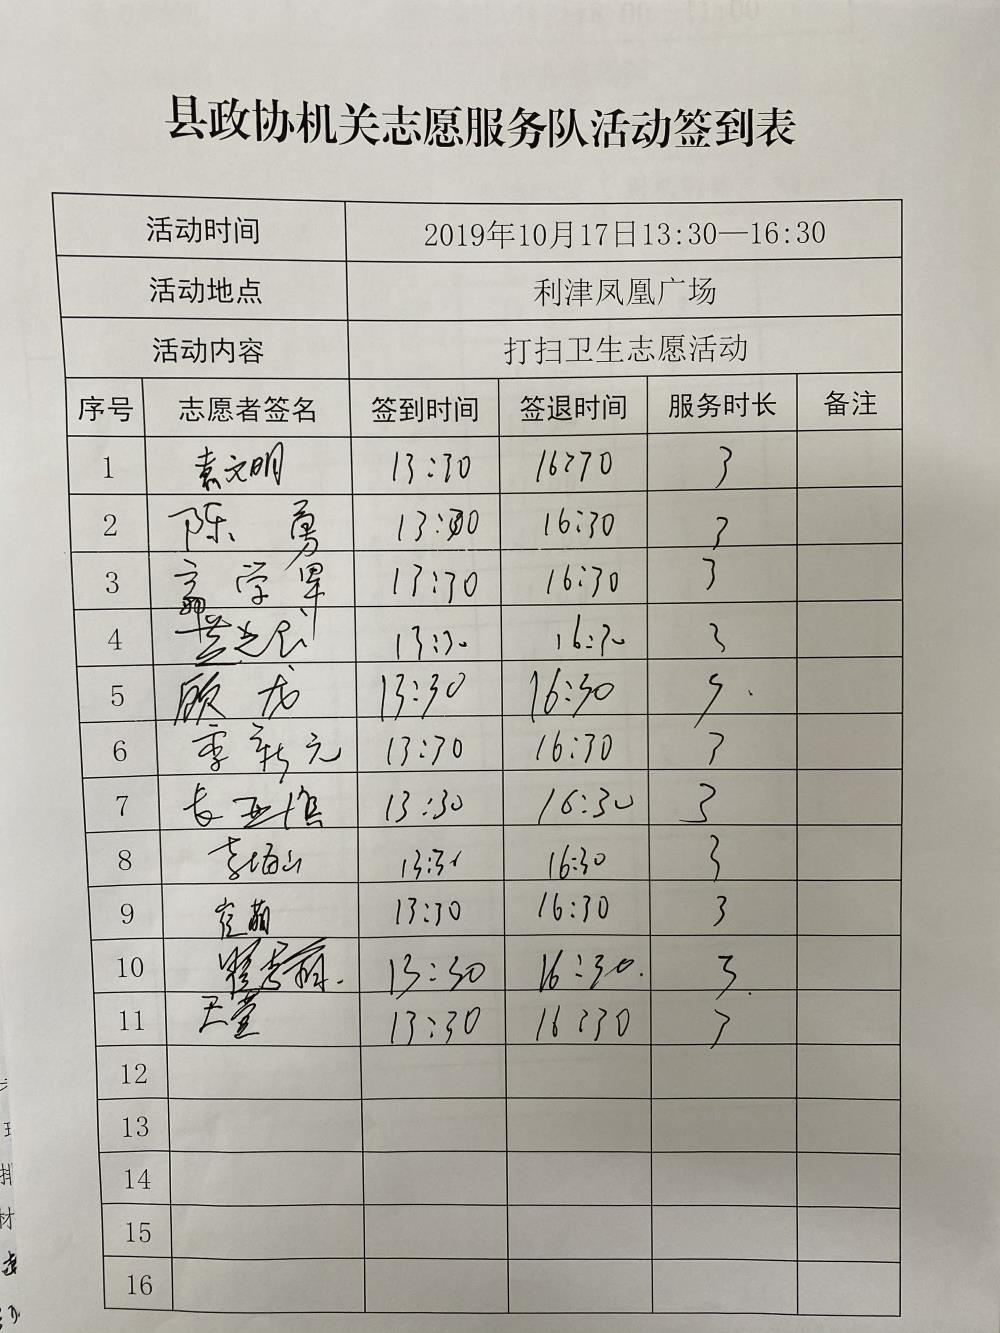 县政协机关志愿服务队活动签到表
活动时间 2019年10月17日13:30—16:30
活动地点 利津凤凰广场
活动内容 打扫卫生志愿活动
序号 志愿者签名 签到时间 签退时间 服务时长 备注
1 袁文明 13:30 16:30 3
2 陈勇 13:30 16:30 3
3 13:30 16:30 3
4 13:30 16:30 3
5 13:30 16:30
6 季新元 13:30 16:30 3
7 13:30 16:30 3
8 李海山 13:30 16:30 3
9 崔萌 13:30 16:30 3
10 13:30 16:30 3
11 13:30 16:30 3
12
13
14
15
16
排
材